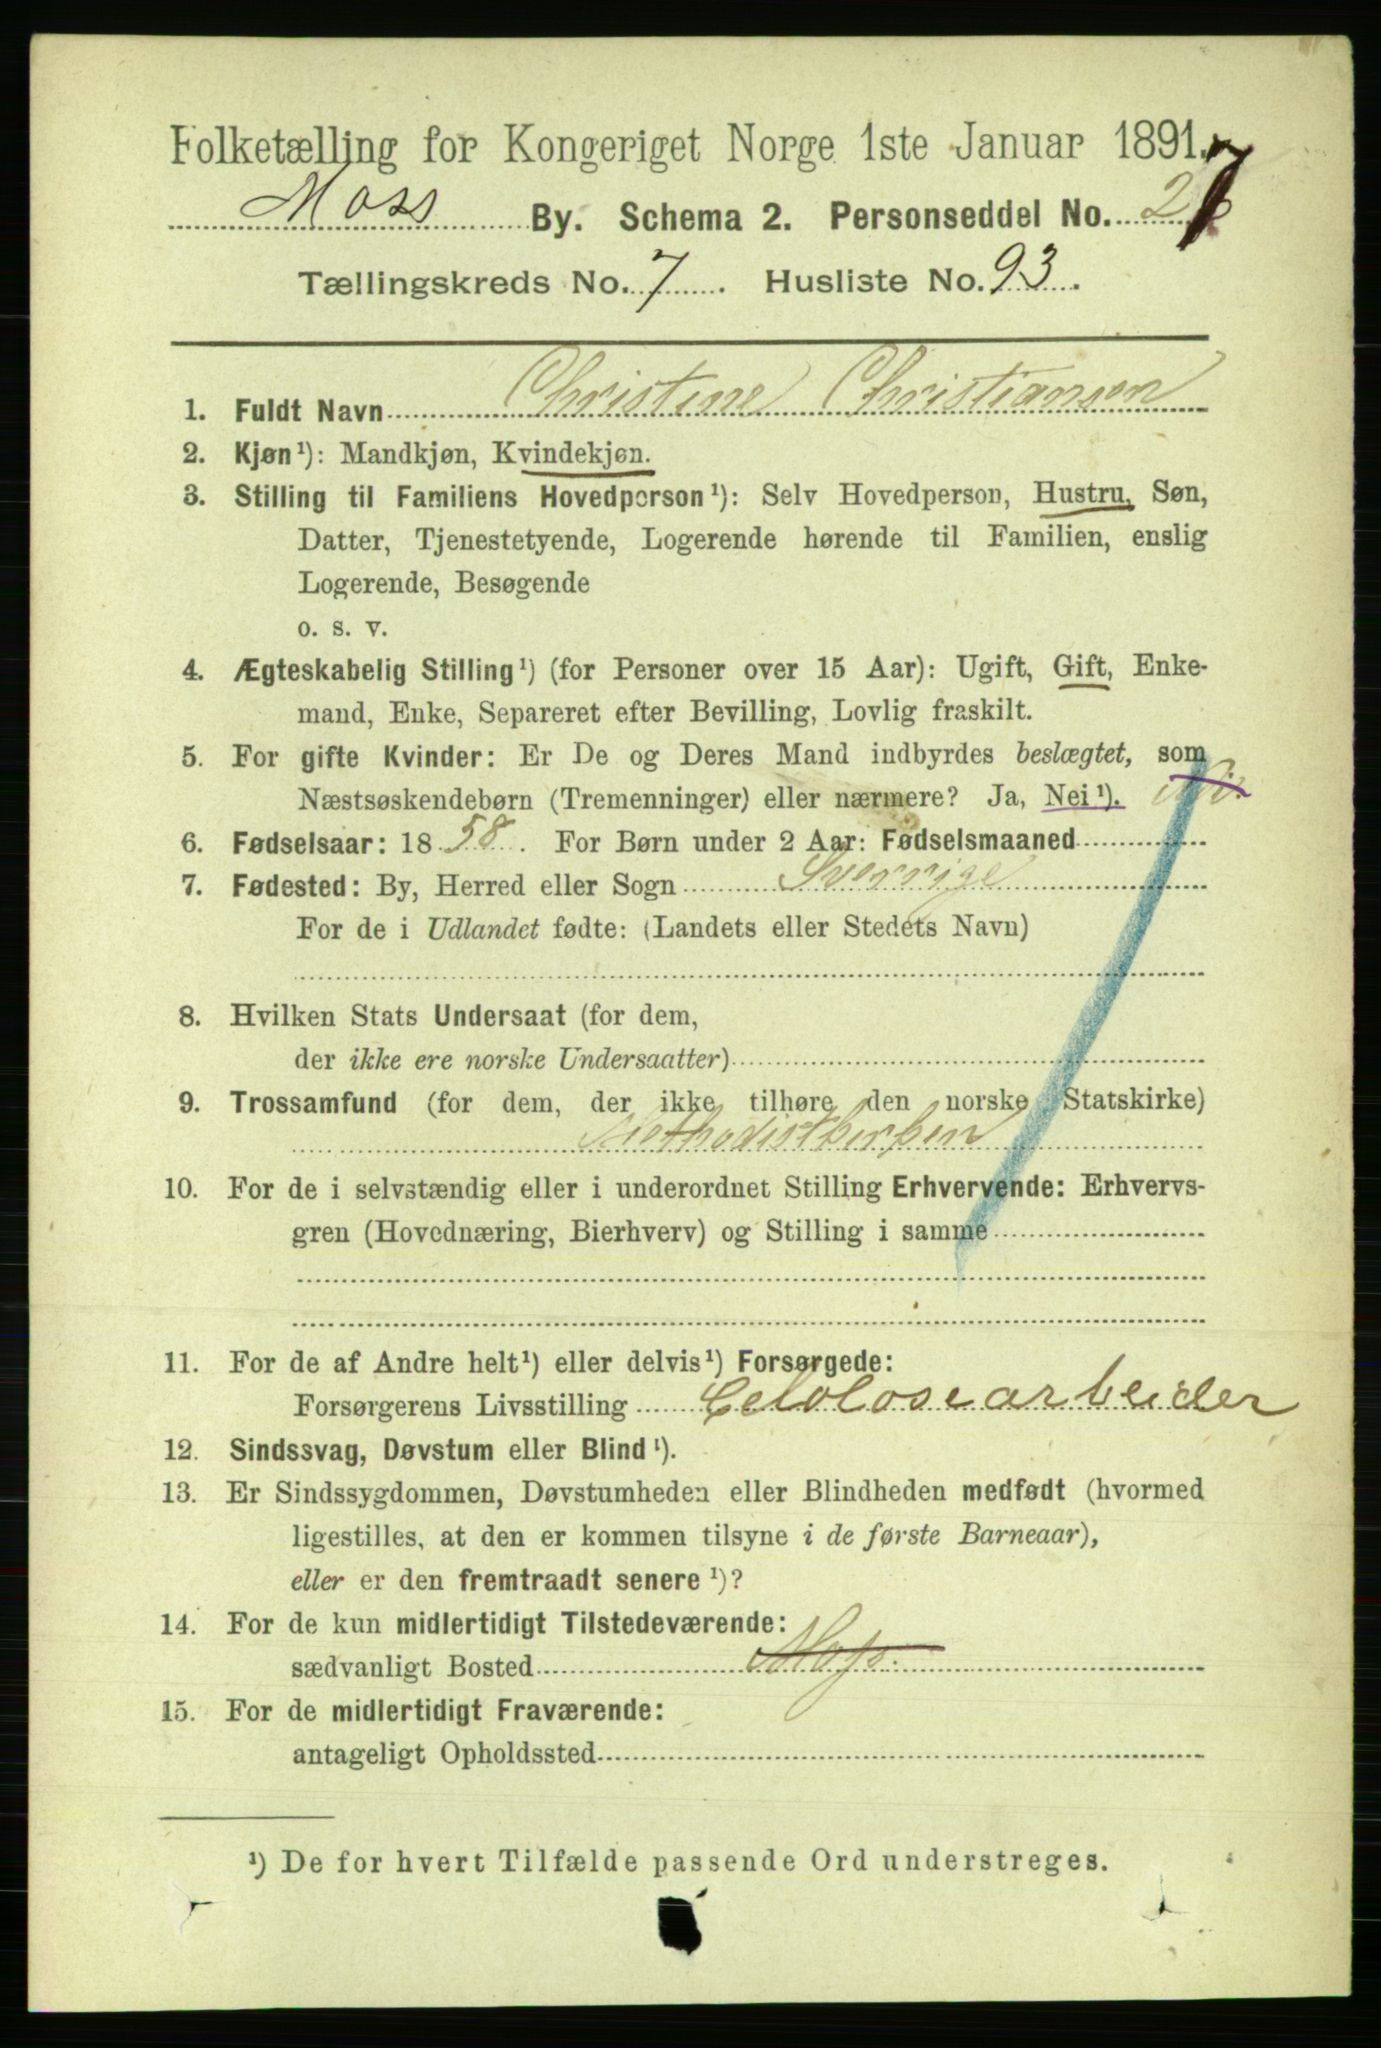 Folketælling for Kongeriget Norge 1ste Januar 1891.
Moss By. Schema 2. Personseddel No. 27
Tællingskreds No. 7. Husliste No. 93.
1. Fuldt Navn Christine Christiansen
2. Kjøn¹): Mandkjøn, Kvindekjøn.
3. Stilling til Familiens Hovedperson¹): Selv Hovedperson, Hustru, Søn,
Datter, Tjenestetyende, Logerende hørende til Familien, enslig
Logerende, Besøgende
o. s. v.
4. Ægteskabelig Stilling¹) (for Personer over 15 Aar): Ugift, Gift, Enke-
mand, Enke, Separeret efter Bevilling, Lovlig fraskilt.
5. For gifte Kvinder: Er De og Deres Mand indbyrdes beslægtet, som
Næstsøskendebørn (Tremenninger) eller nærmere? Ja, Nei¹).
6. Fødselsaar: 1858. For Børn under 2 Aar: Fødselsmaaned
7. Fødested: By, Herred eller Sogn Sverrige
For de i Udlandet fødte: (Landets eller Stedets Navn)
8. Hvilken Stats Undersaat (for dem,
der ikke ere norske Undersaatter)
9. Trossamfund (for dem, der ikke tilhøre den norske Statskirke)
Methodistkirken
10. For de i selvstændig eller i underordnet Stilling Erhvervende: Erhvervs-
gren (Hovednæring, Bierhverv) og Stilling i samme
11. For de af Andre helt¹) eller delvis¹) Forsørgede:
Forsørgerens Livsstilling Celolosearbeider
12. Sindssvag, Døvstum eller Blind¹).
13. Er Sindssygdommen, Døvstumheden eller Blindheden medfødt (hvormed
ligestilles, at den er kommen tilsyne i de første Barneaar),
eller er den fremtraadt senere¹)?
14. For de kun midlertidigt Tilstedeværende:
sædvanligt Bosted Moss.
15. For de midlertidigt Fraværende:
antageligt Opholdssted
¹) De for hvert Tilfælde passende Ord understreges.